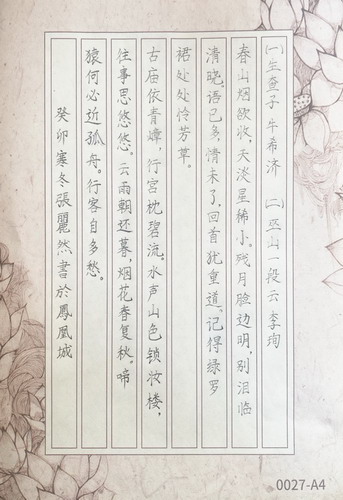 (一)生查子 牛希济 (二)巫山一段云 李珣
春山烟欲收，天淡星稀小。残月脸边明，别泪临
清晓。语已多，情未了，回首犹重道。记得绿罗
裙，处处怜芳草。
古庙依青嶂，行宫枕碧流。水声山色锁妆楼，
往事思悠悠。云雨朝还暮，烟花春复秋。啼
猿何必近孤舟。行客自多愁。
癸卯寒冬張麗然書於鳳凰城
0027-A4